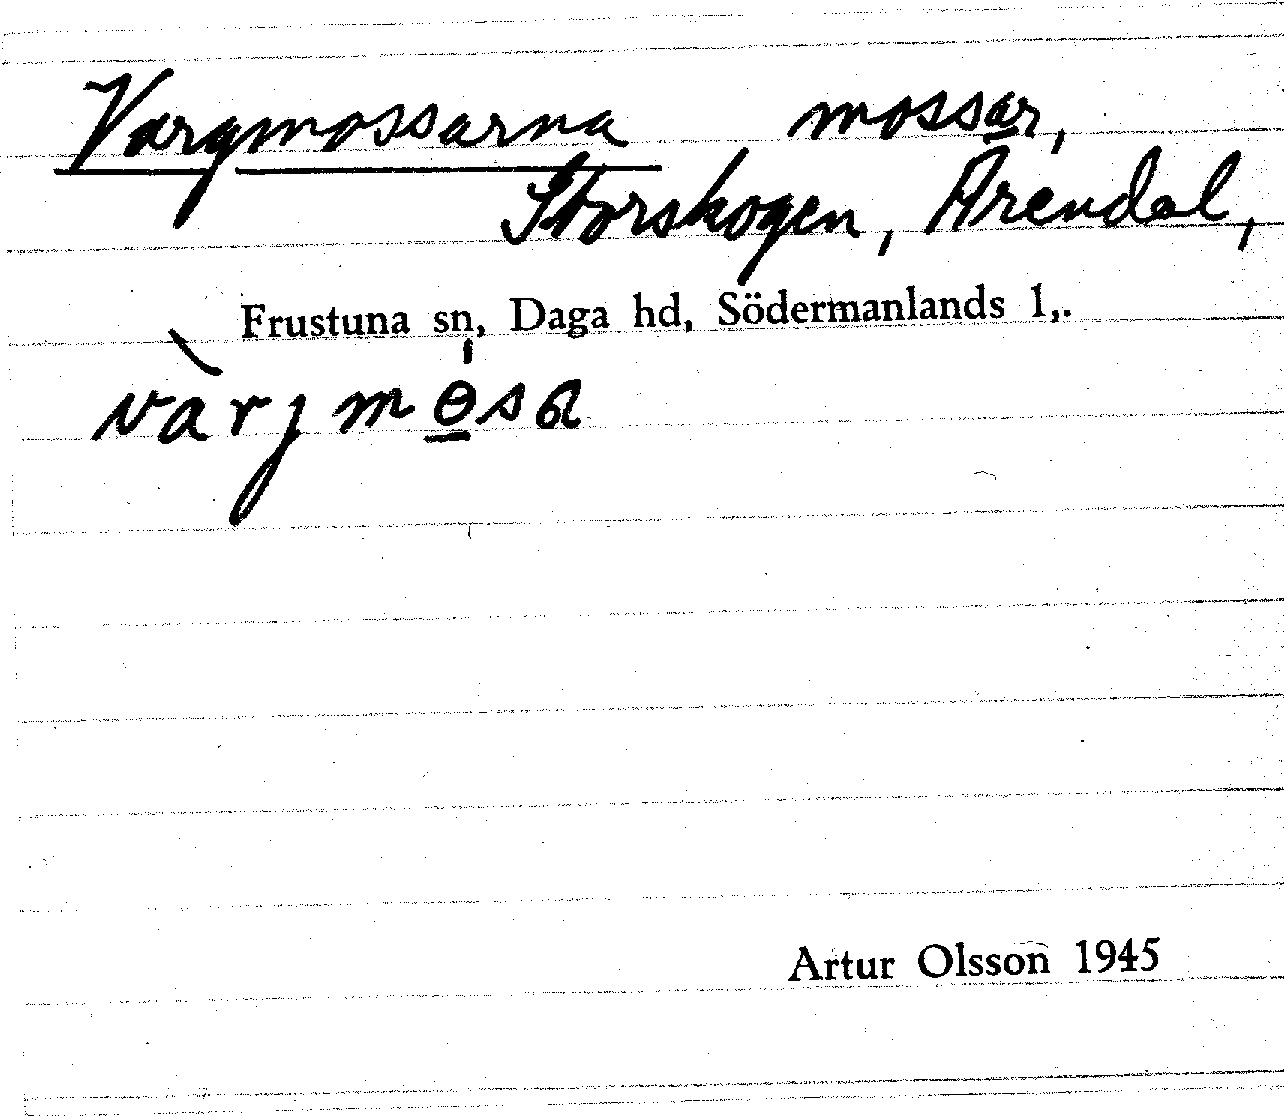 Vargmossarna mossar,
Storskogen, Årendal,
Frustuna sn, Daga hd, Södermanlands l,.
Artur Olsson 1945